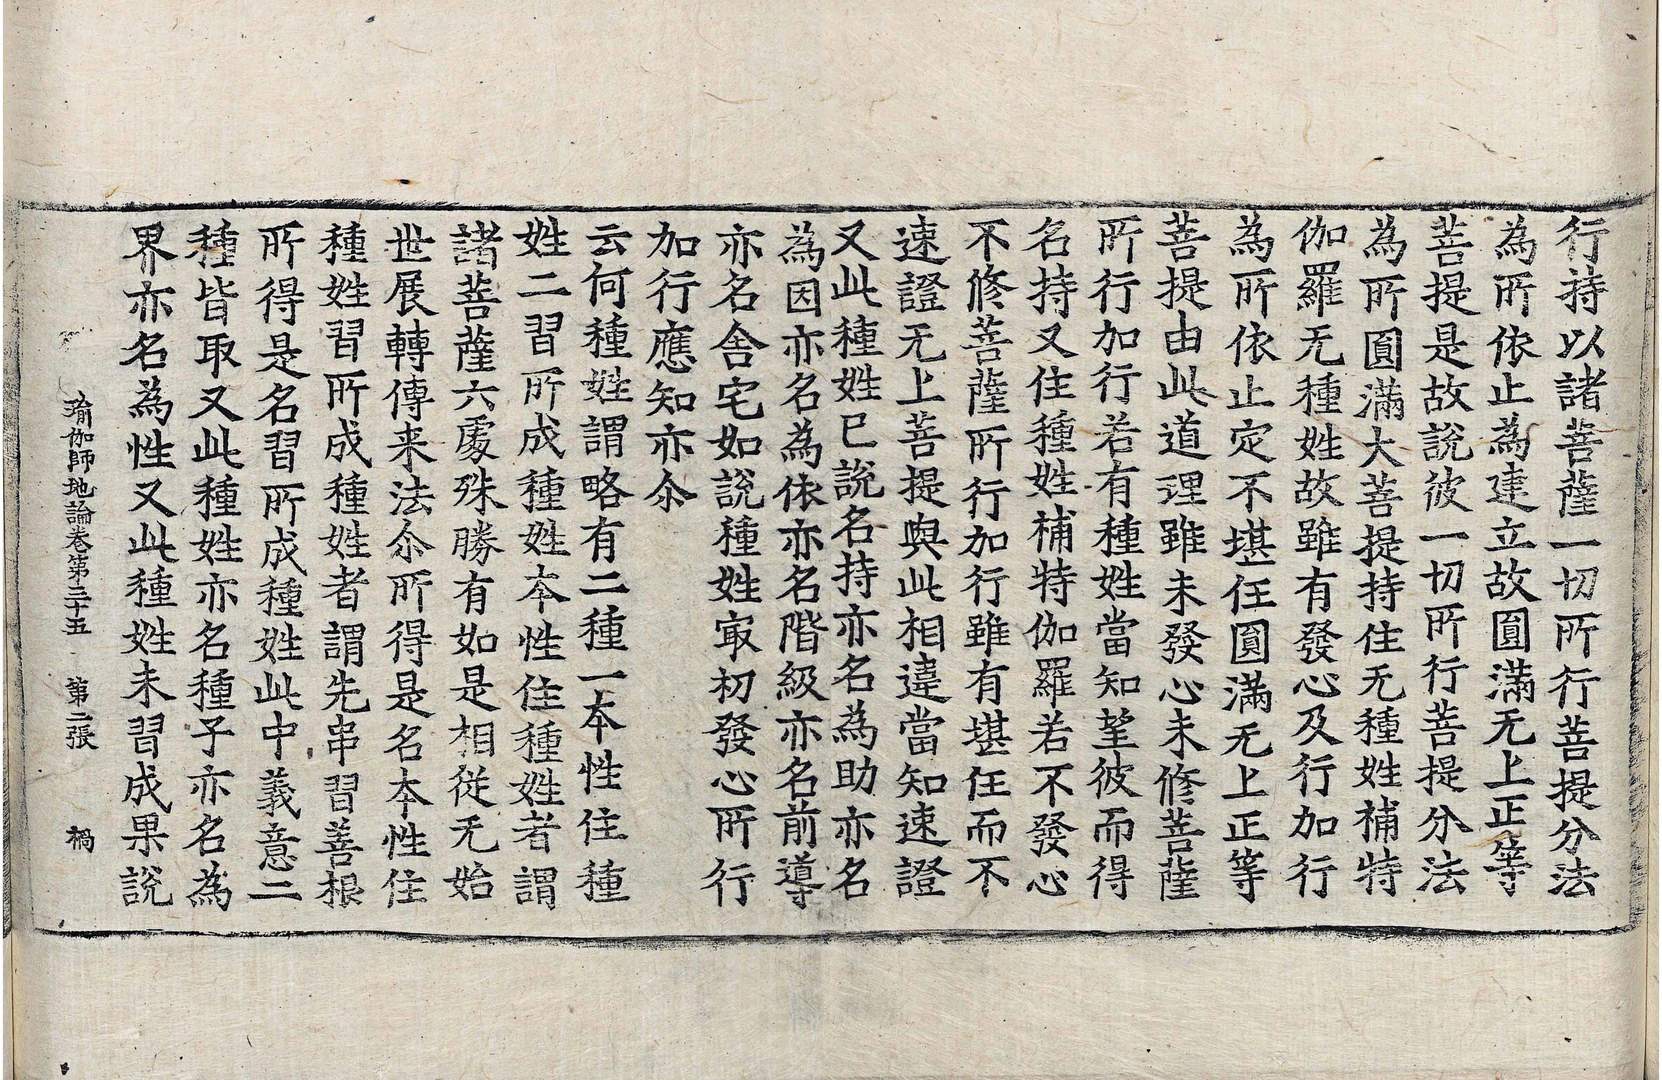 行持以諸菩薩一切所行菩提分法
為所依止為建立故圓滿无上正等
菩提是故說彼一切所行菩提分法
為所圓滿大菩提持住无種姓補特
伽羅无種姓故雖有發心及行加行
為所依止定不堪任圓滿无上正等
菩提由此道理雖未發心未修菩薩
所行加行若有種姓當知望彼而得
名持又住種姓補特伽羅若不發心
不修菩薩所行加行雖有堪任而不
速證无上菩提與此相違當知速證
又此種姓已說名持亦名為助亦名
為因亦名為依亦名階級亦名前導
亦名舍宅如說種姓冣初發心所行
加行應知亦尒
云何種姓謂略有二種一本性住種
姓二習所成種姓本性住種姓者謂
諸菩薩六處殊勝有如是相從无始
世展轉傳来法尒所得是名本性住
種姓習所成種姓者謂先串習善根
所得是名習所成種姓此中義意二
種皆取又此種姓亦名種子亦名為
界亦名為性又此種姓未習成果說
瑜伽師地論卷第三十五 第二張 禍